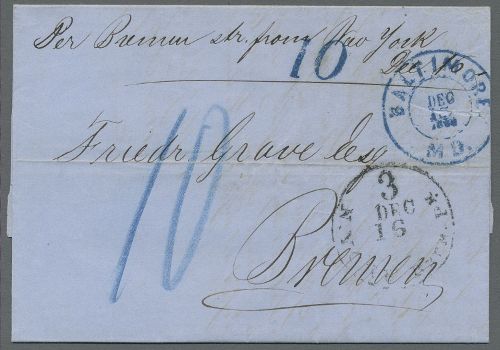 Per Bremen str. from New York
Dec 16
10
BALTIMORE
DEC
MD.
Friedr Grave Esq
10
3
DEC
16
N.Y.
Bremen